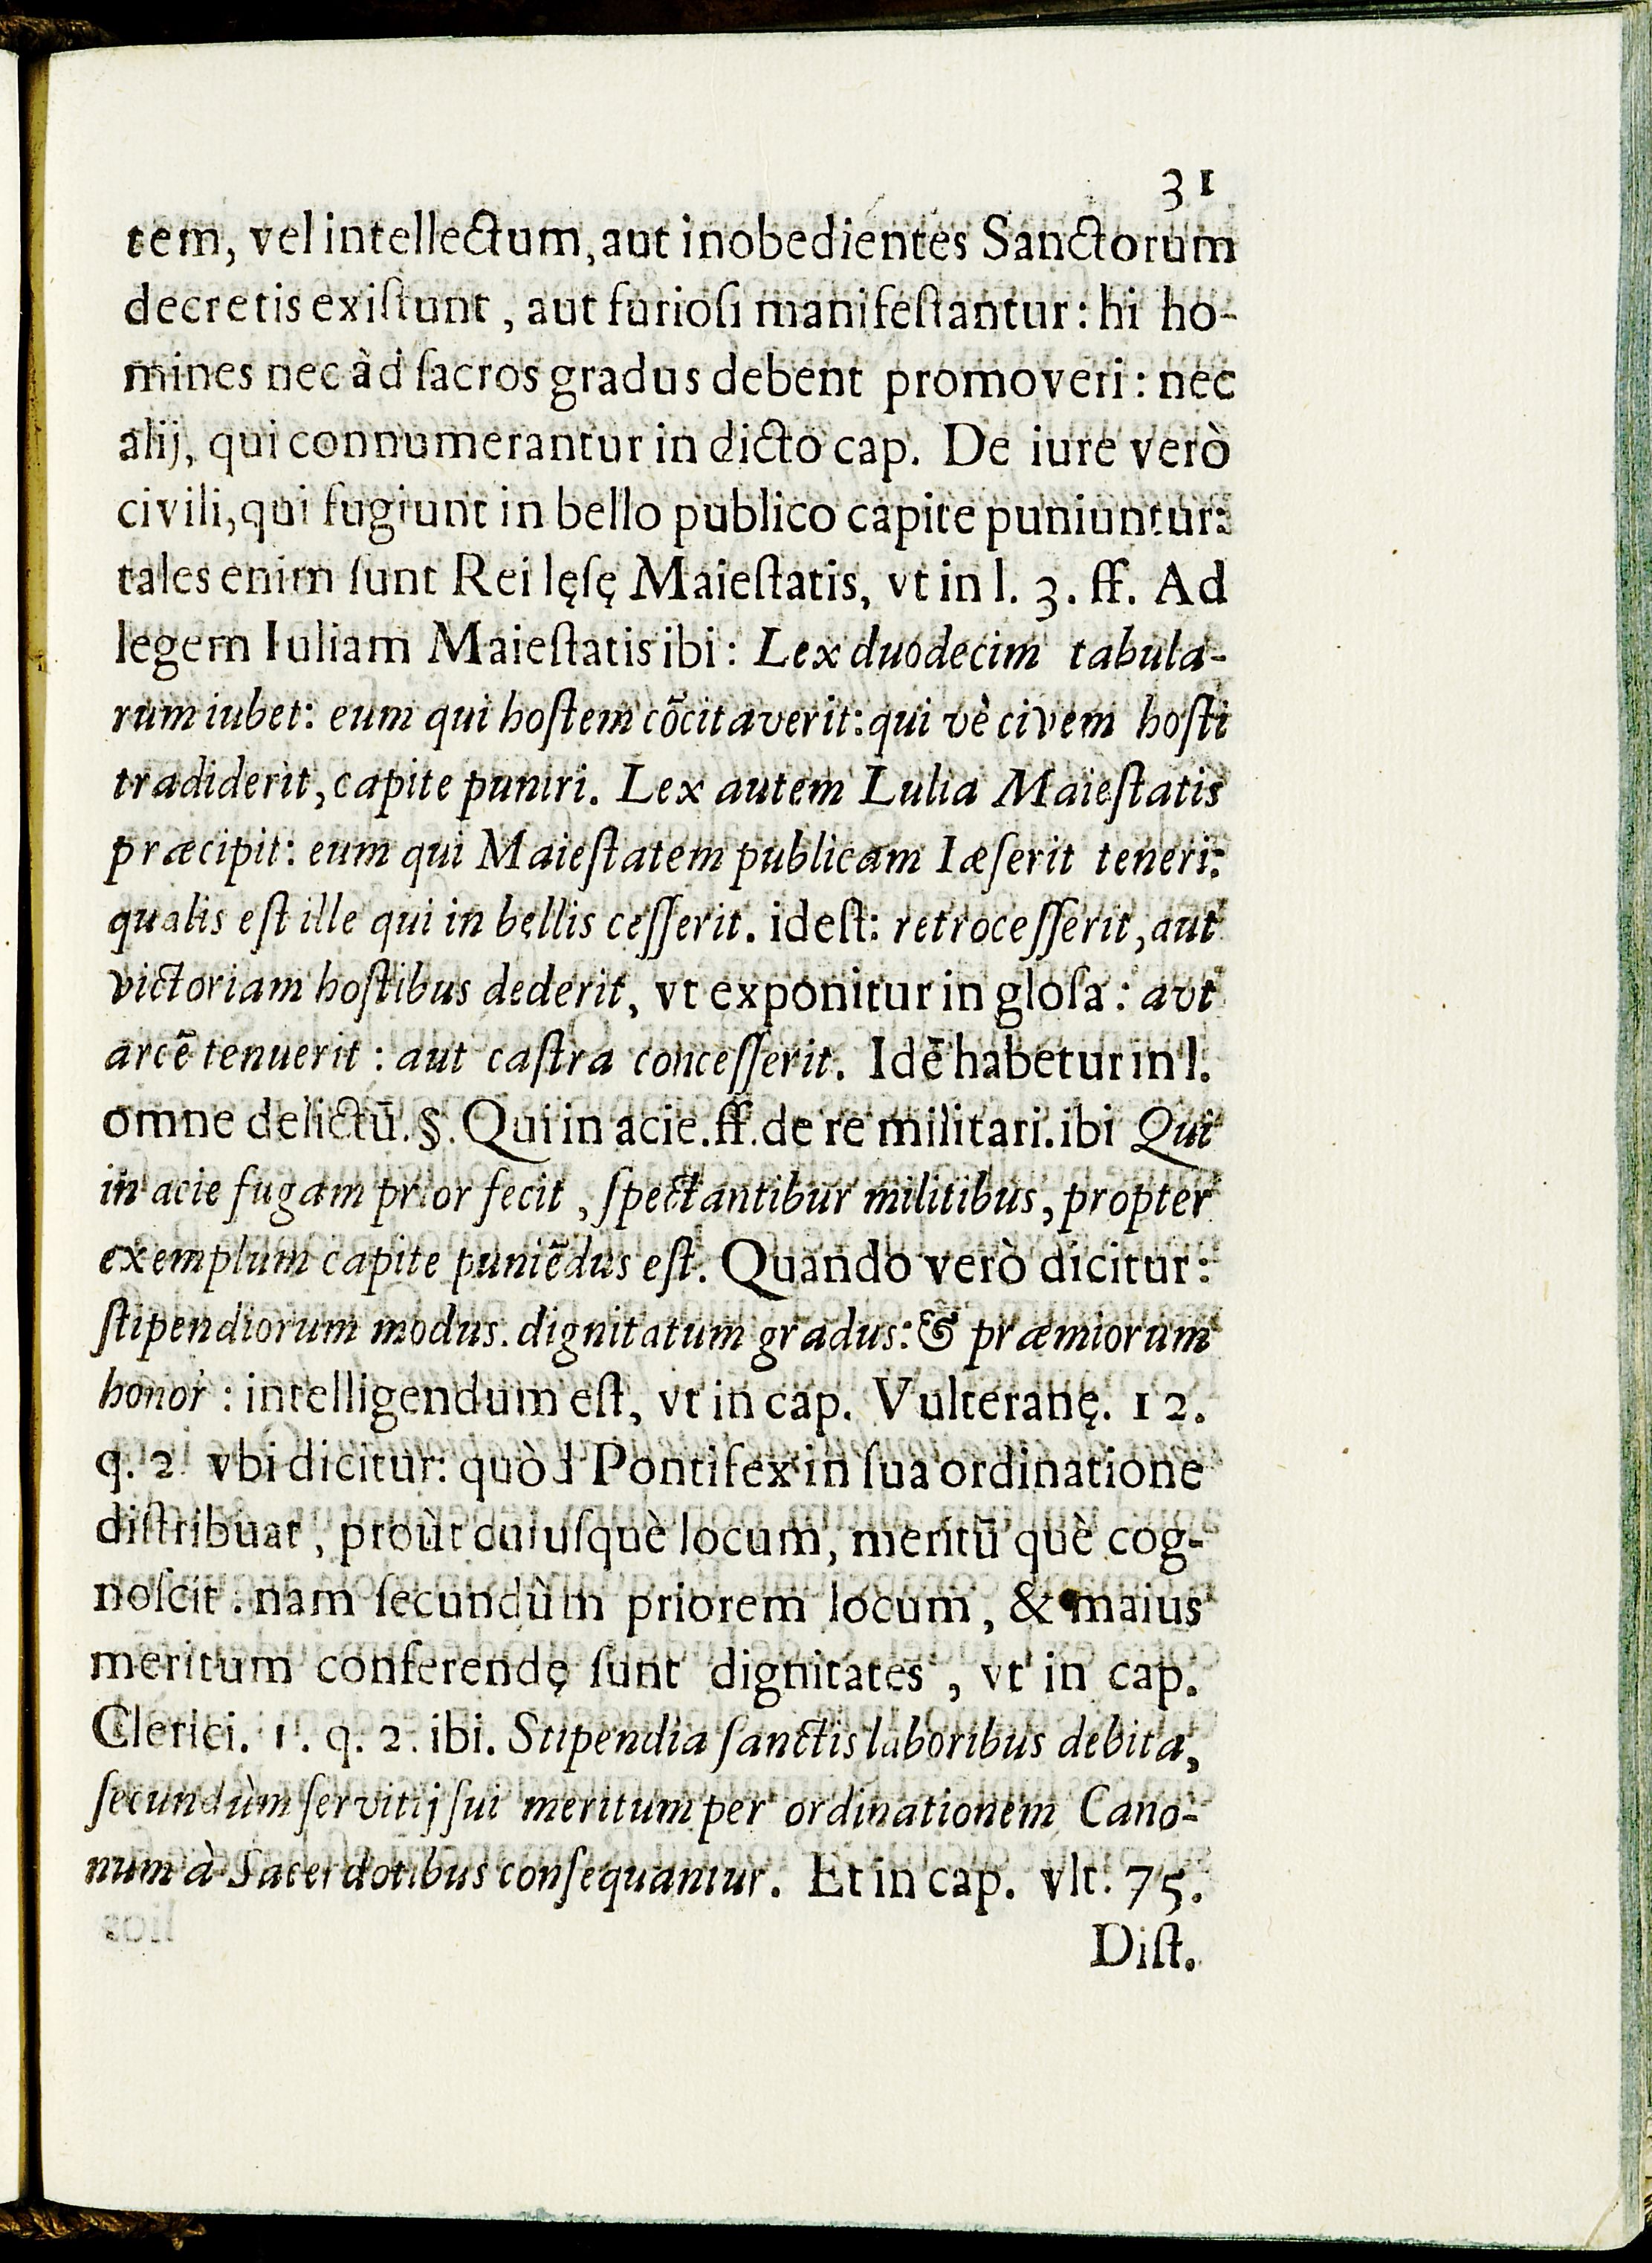 31
tem, vel intellectum, aut inobedientes Sanctorum
decretis exiſtunt, aut furioſi manifeſtantur: hi ho-
mines nec àd ſacros gradus debent promoveri: nec
alij, qui connumerantur in dicto cap. De iure verò
civili, qui fugiunt in bello publico capite puniuntur:
tales enim ſunt Rei lęſę Maieſtatis, vt in l. 3. ff. Ad
legem Iuliam Maieſtatis ibi: Lex duodecim tabula-
rum iubet: eum qui hoſtem cõcitaverit: qui vè civem hoſti
tradiderit, capite puniri. Lex autem Lulia Maieſtatis
præcipit: eum qui Maieſtatem publicam Iæſerit teneri:
qualis eſt ille qui in bellis ceſſerit. ideſt: retroceſſerit, aut
victoriam hoſtibus dederit, vt exponitur in gloſa: avt
arcẽ tenuerit: aut caſtra conceſſerit. Idẽ habetur in l.
omne delictũ. §. Qui in acie. ff. de re militari. ibi Qui
in acie fugam prior fecit, ſpectantibur militibus, propter
exemplum capite puniẽdus eſt. Quando verò dicitur:
ſtipendiorum modus. dignitatum gradus: & præmiorum
honor: intelligendum eſt, vt in cap. Vulteranę. 12.
q. 2. vbi dicitur: quòd Pontifex in ſua ordinatione
diſtribuat, proùt cuiuſquè locum, meritũ què cog-
noſcit: nam ſecundùm priorem locum, & maius
meritum conferendę ſunt dignitates, vt in cap.
Clerici. 1. q. 2. ibi. Stipendia ſanctis laboribus debita,
ſecundùm ſervitij ſui meritum per ordinationem Cano-
num à Sacerdotibus conſequantur. Et in cap. vlt. 75.
Diſt.